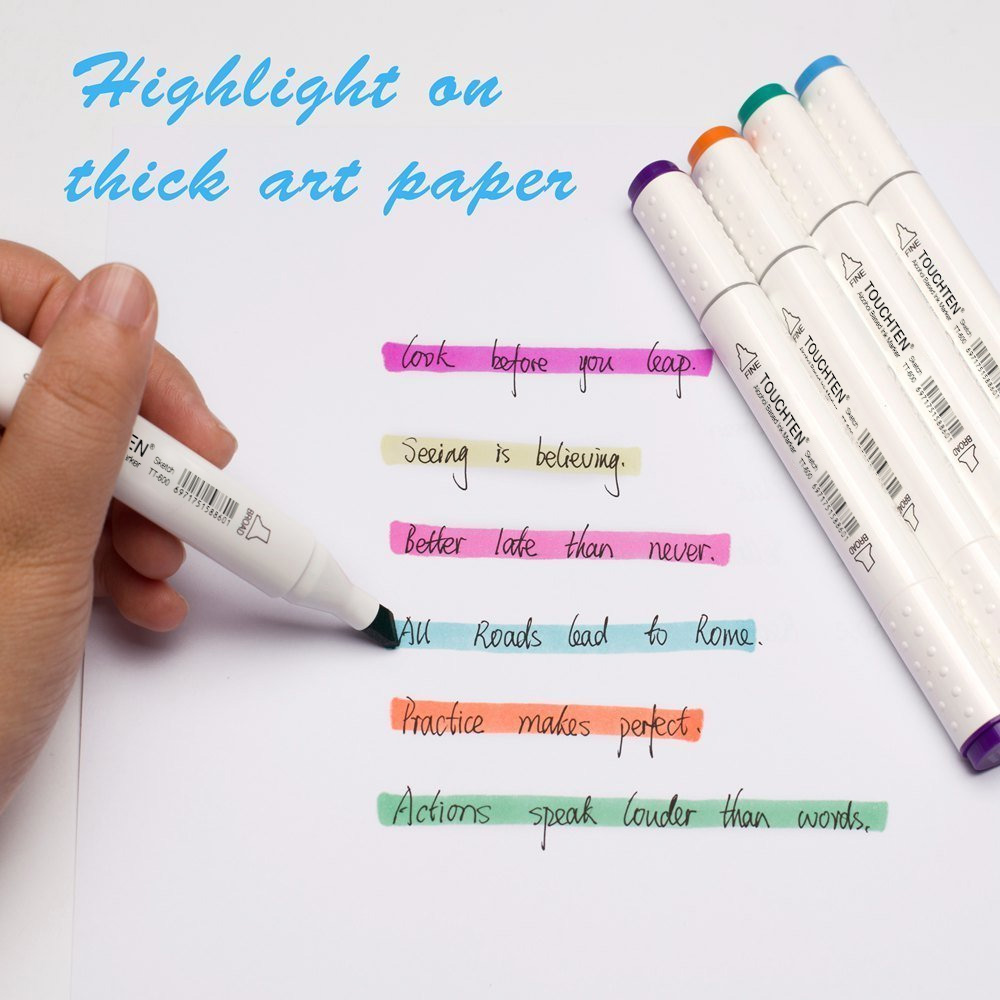 Highlight on
thick art paper
Look before you leap.
Seeing is believing.
Better late than never.
All Roads lead to Rome.
Practice makes perfect.
Actions speak louder than words.
EN®
Sketch
TT-600
6971751588601
BROAD
FINE
TOUCHTEN®
Alcohol Based Ink Marker
Sketch
TT-600
BROAD
FINE
TOUCHTEN®
Sketch
BROAD
FINE
TOUCHTEN®
Alcohol Based Ink Marker
Sketch
TT-600
BROAD
FINE
TOUCHTEN®
Alcohol Based Ink Marker
Sketch
TT-600